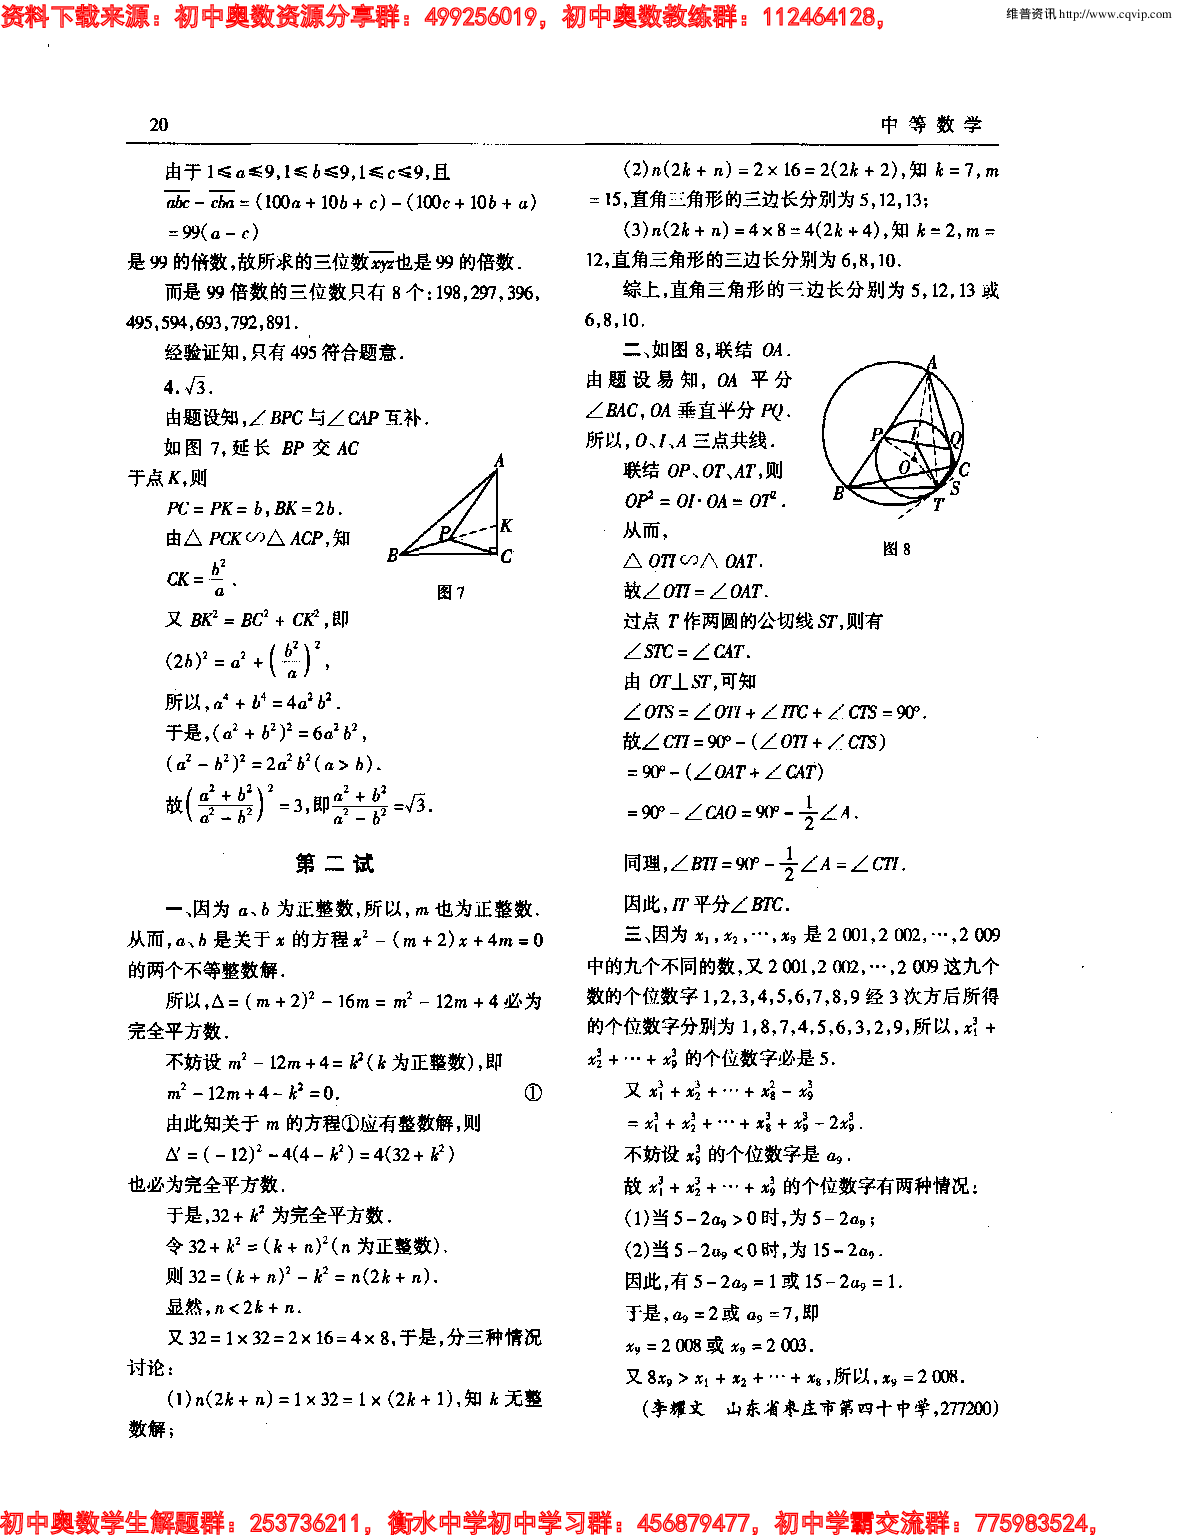 资料下载来源：初中奥数资源分享群：499256019，初中奥数教练群：112464128，
维普资讯 http://www.cqvip.com
20
中 等 数 学
由于 1≤a≤9,1≤b≤9,1≤c≤9,且
abc - cba = (100a + 10b + c) - (100c + 10b + a)
= 99(a - c)
是 99 的倍数,故所求的三位数xyz也是 99 的倍数.
而是 99 倍数的三位数只有 8 个:198,297,396,
495,594,693,792,891.
经验证知,只有 495 符合题意.
4. √3.
由题设知,∠BPC 与∠CAP 互补.
如图 7,延长 BP 交 AC
于点 K,则
PC = PK = b, BK = 2b.
由△PCK∽△ACP,知
CK = b²/a.
又 BK² = BC² + CK²,即
(2b)² = a² + (b²/a)²,
所以, a⁴ + b⁴ = 4a²b².
于是,(a² + b²)² = 6a²b²,
(a² - b²)² = 2a²b²(a > b).
故((a² + b²)/(a² - b²))² = 3,即(a² + b²)/(a² - b²) = √3.
A
K
P
B
C
图 7
第 二 试
一、因为 a、b 为正整数,所以, m 也为正整数.
从而, a、b 是关于 x 的方程 x² - (m + 2)x + 4m = 0
的两个不等整数解.
所以,Δ = (m + 2)² - 16m = m² - 12m + 4 必为
完全平方数.
不妨设 m² - 12m + 4 = k²(k 为正整数),即
m² - 12m + 4 - k² = 0. ①
由此知关于 m 的方程①应有整数解,则
Δ′ = (-12)² - 4(4 - k²) = 4(32 + k²)
也必为完全平方数.
于是,32 + k² 为完全平方数.
令 32 + k² = (k + n)²(n 为正整数).
则 32 = (k + n)² - k² = n(2k + n).
显然, n < 2k + n.
又 32 = 1×32 = 2×16 = 4×8,于是,分三种情况
讨论:
(1)n(2k + n) = 1×32 = 1×(2k + 1),知 k 无整
数解;
(2)n(2k + n) = 2×16 = 2(2k + 2),知 k = 7, m
= 15,直角三角形的三边长分别为 5,12,13;
(3)n(2k + n) = 4×8 = 4(2k + 4),知 k = 2, m =
12,直角三角形的三边长分别为 6,8,10.
综上,直角三角形的三边长分别为 5,12,13 或
6,8,10.
二、如图 8,联结 OA.
由题设易知, OA 平分
∠BAC, OA 垂直平分 PQ.
所以, O、I、A 三点共线.
联结 OP、OT、AT,则
OP² = OI·OA = OT².
从而,
△OTI∽△OAT.
故∠OTI = ∠OAT.
A
P
I
Q
O
C
B
S
T
图 8
过点 T 作两圆的公切线 ST,则有
∠STC = ∠CAT.
由 OT⊥ST,可知
∠OTS = ∠OTI + ∠ITC + ∠CTS = 90°.
故∠CTI = 90° - (∠OTI + ∠CTS)
= 90° - (∠OAT + ∠CAT)
= 90° - ∠CAO = 90° - 1/2∠A.
同理,∠BTI = 90° - 1/2∠A = ∠CTI.
因此, IT 平分∠BTC.
三、因为 x₁, x₂, …, x₉ 是 2 001,2 002,…,2 009
中的九个不同的数,又 2 001,2 002,…,2 009 这九个
数的个位数字 1,2,3,4,5,6,7,8,9 经 3 次方后所得
的个位数字分别为 1,8,7,4,5,6,3,2,9,所以, x₁³ +
x₂³ + … + x₉³ 的个位数字必是 5.
又 x₁³ + x₂³ + … + x₈³ - x₉³
= x₁³ + x₂³ + … + x₈³ + x₉³ - 2x₉³.
不妨设 x₉³ 的个位数字是 a₉.
故 x₁³ + x₂³ + … + x₉³ 的个位数字有两种情况:
(1)当 5 - 2a₉ > 0 时,为 5 - 2a₉;
(2)当 5 - 2a₉ < 0 时,为 15 - 2a₉.
因此,有 5 - 2a₉ = 1 或 15 - 2a₉ = 1.
于是, a₉ = 2 或 a₉ = 7,即
x₉ = 2 008 或 x₉ = 2 003.
又 8x₉ > x₁ + x₂ + … + x₈,所以, x₉ = 2 008.
(李耀文 山东省枣庄市第四十中学,277200)
初中奥数学生解题群：253736211，衡水中学初中学习群：456879477，初中学霸交流群：775983524，